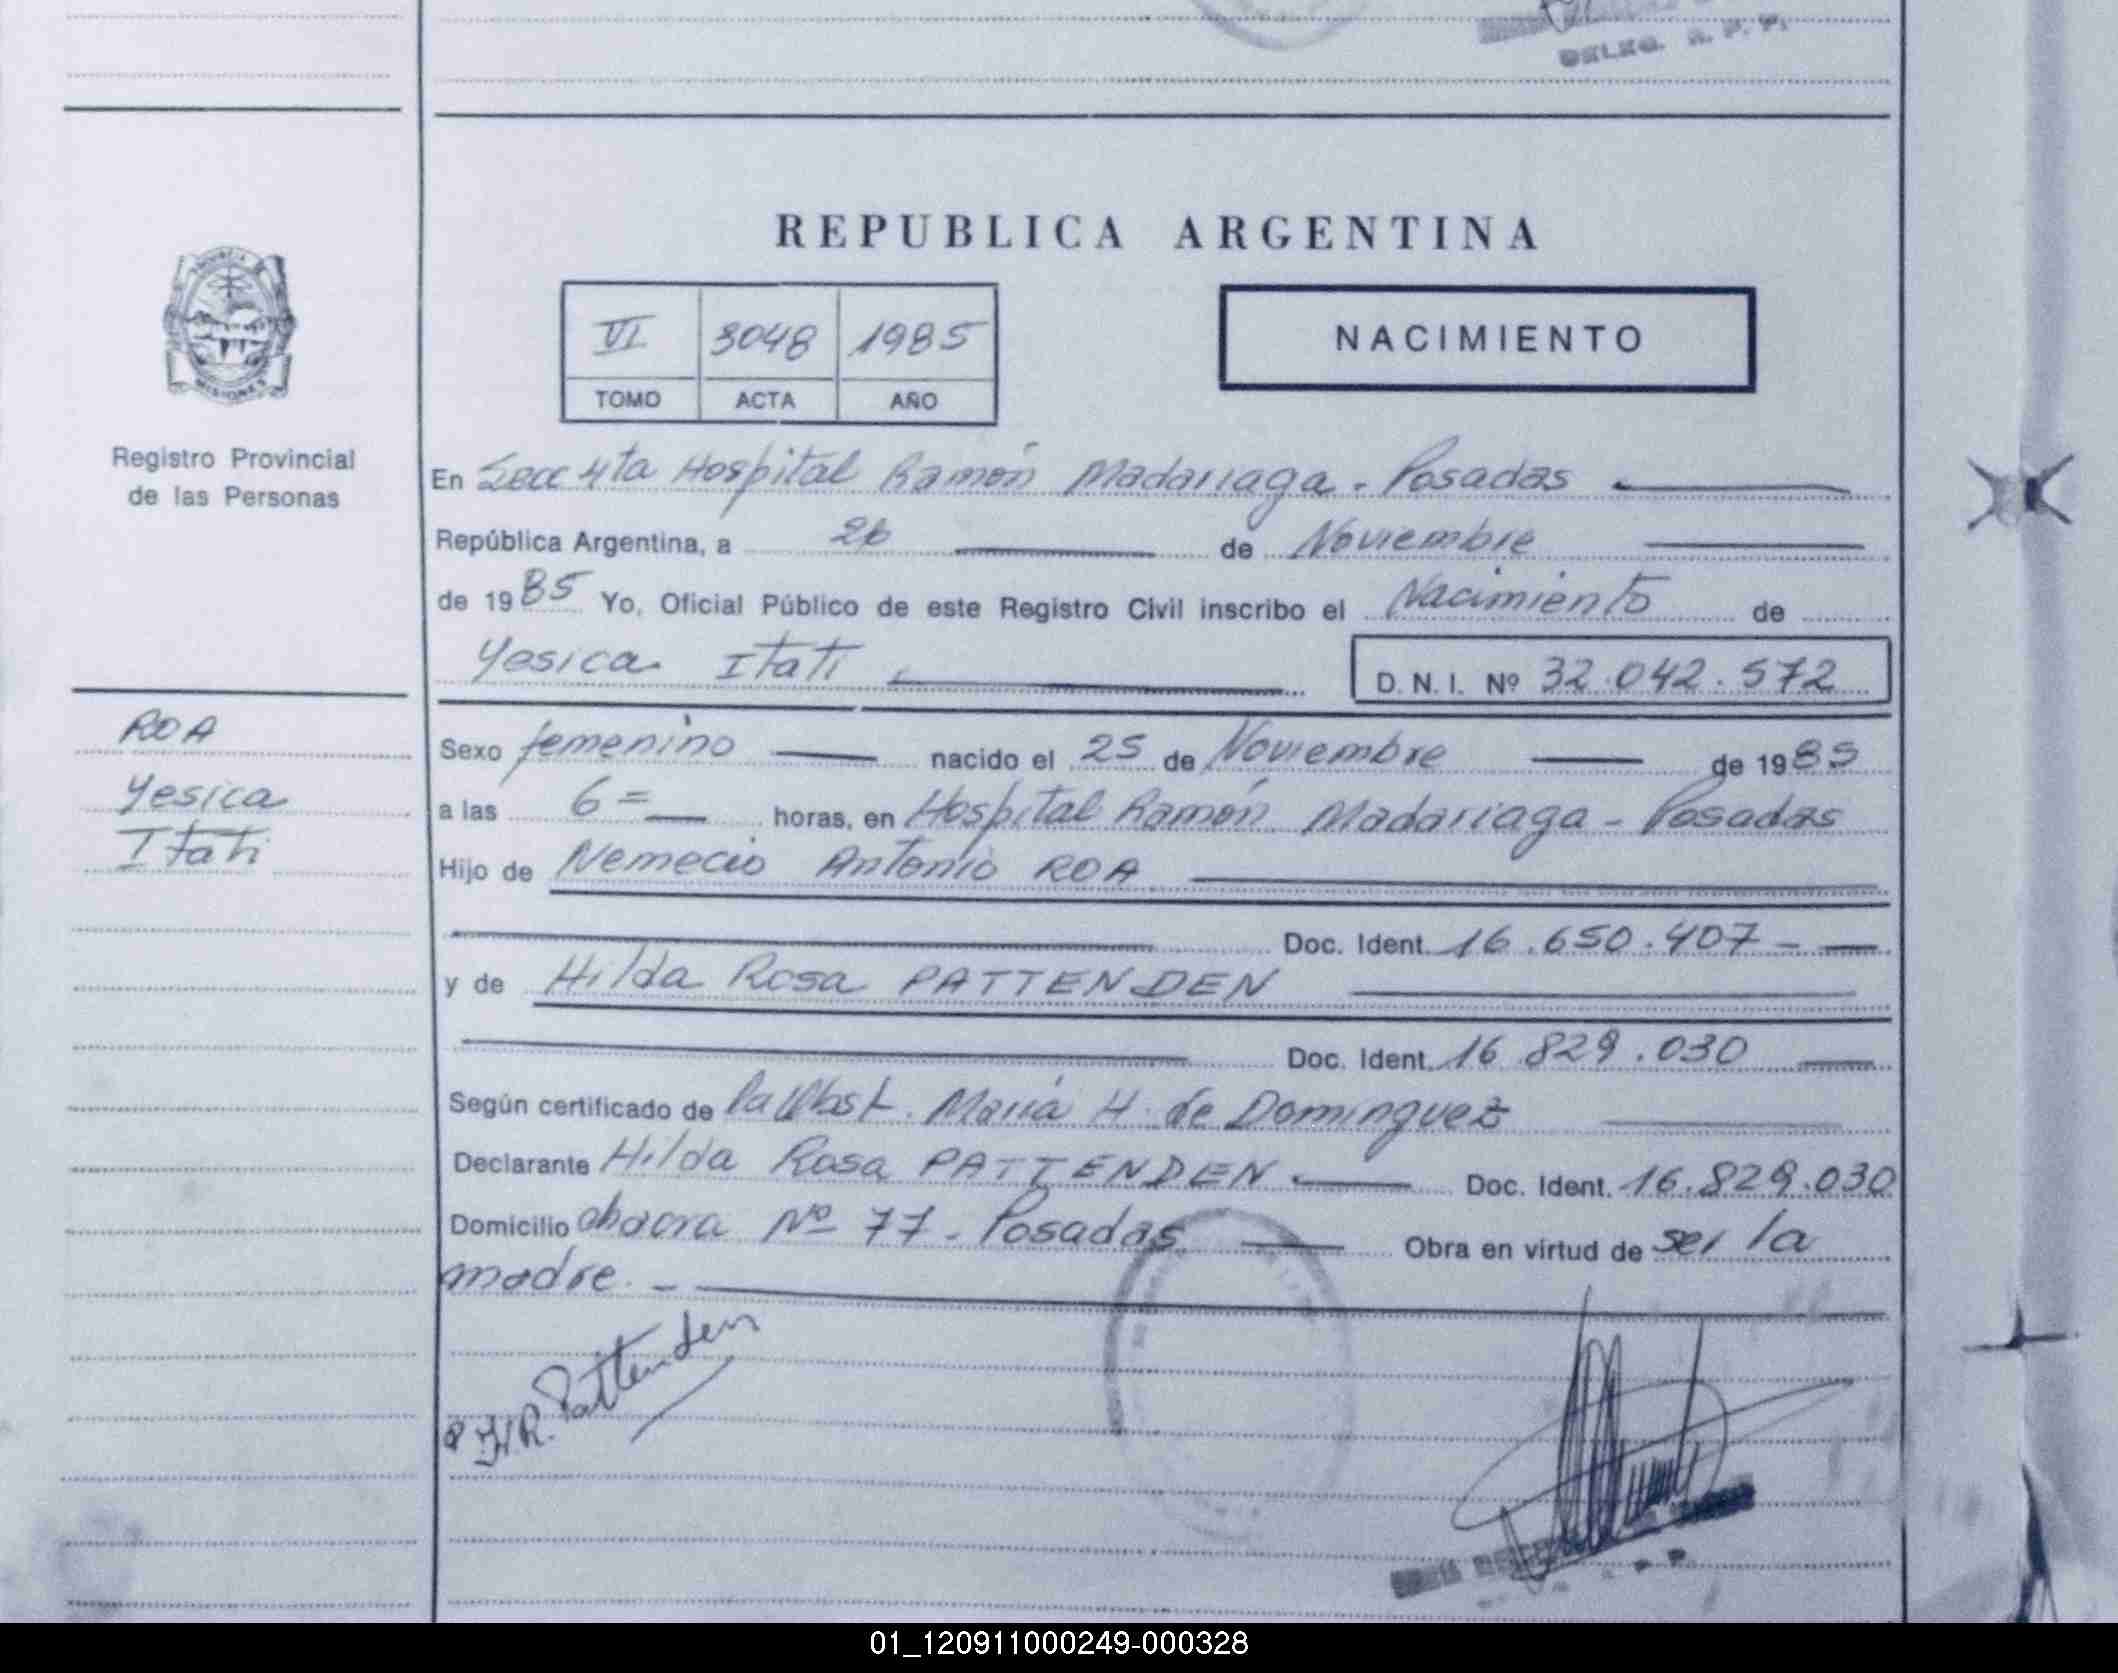 DELEG. R. P. P.
REPUBLICA ARGENTINA
VI 3048 1985
TOMO ACTA AÑO
NACIMIENTO
PROVINCIA DE
MISIONES
Registro Provincial
de las Personas
En Secc 4ta Hospital Ramón Madariaga - Posadas
República Argentina, a 26 de Noviembre
de 1985 Yo, Oficial Público de este Registro Civil inscribo el Nacimiento de
Yesica Itati D. N. I. Nº 32.042.572
ROA
Yesica
Itati
Sexo femenino nacido el 25 de Noviembre de 1985
a las 6= horas, en Hospital Ramón Madariaga - Posadas
Hijo de Nemecio Antonio ROA
Doc. Ident. 16.650.407 -
y de Hilda Rosa PATTENDEN
Doc. Ident. 16 829.030
Según certificado de la Obst. María H. de Dominguez
Declarante Hilda Rosa PATTENDEN Doc. Ident. 16.829.030
Domicilio chacra Nº 77 - Posadas Obra en virtud de ser la
madre. -
H.R. Pattenden
01_120911000249-000328